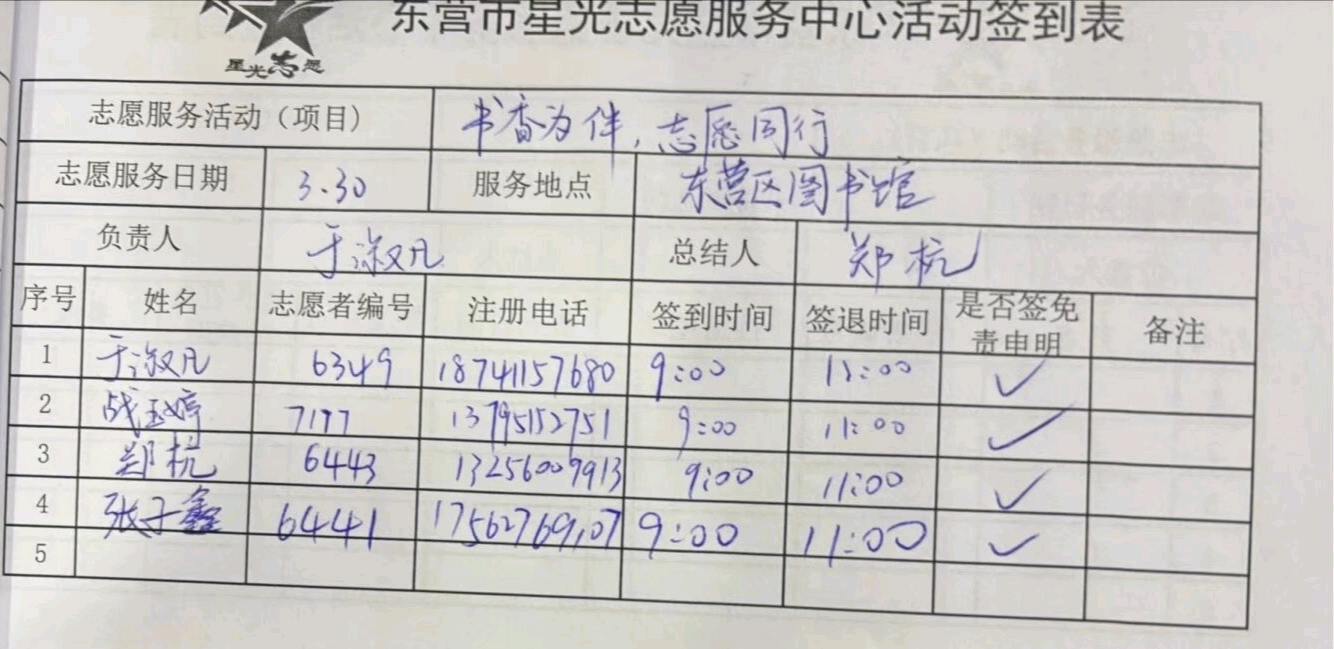 东营市星光志愿服务中心活动签到表
星光志愿
志愿服务活动（项目） 书香为伴，志愿同行
志愿服务日期 3.30 服务地点 东营区图书馆
负责人 于淑凡 总结人 郑杭
序号 姓名 志愿者编号 注册电话 签到时间 签退时间 是否签免责申明 备注
1 于淑凡 6349 18741157680 9:00 11:00 ✓
2 战玉婷 7177 13795152751 9:00 11:00 ✓
3 郑杭 6443 13256009913 9:00 11:00 ✓
4 张子鑫 6441 17562769107 9:00 11:00 ✓
5